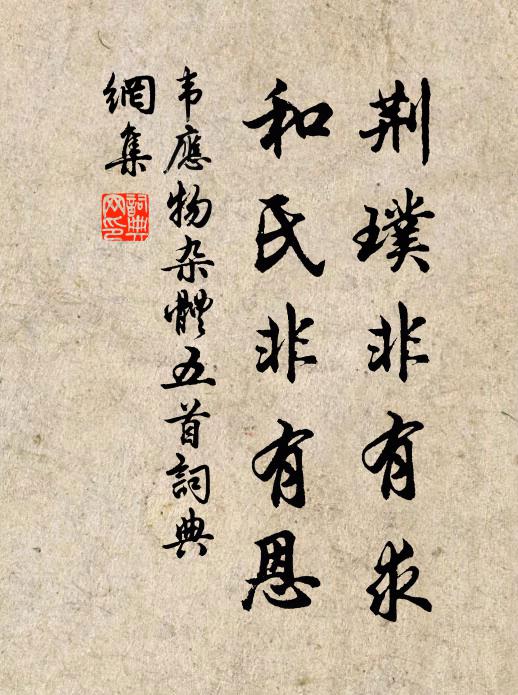 荆璞非有求
和氏非有恩
韦應物杂體五首詞典
網集
詞典網印